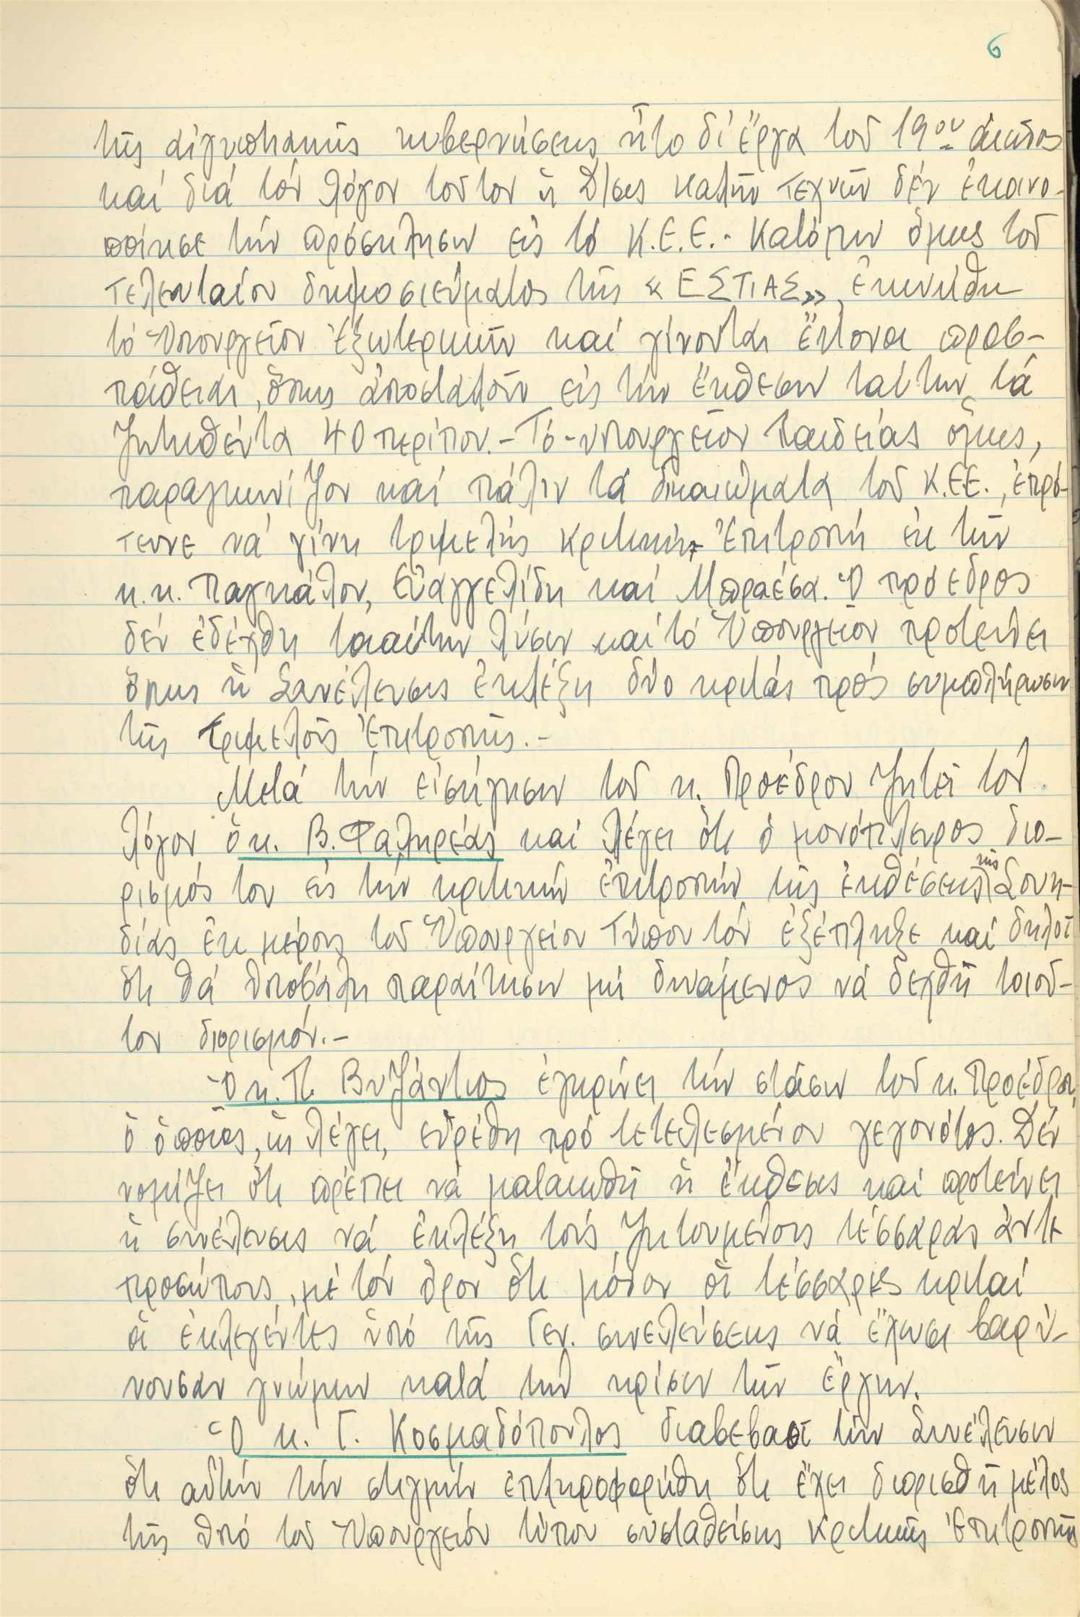 6
τῆς αἰγυπτιακῆς κυβερνήσεως ἦτο δι' ἔργα τοῦ 19ου αἰῶνος
καί διά τόν λόγον τοῦτον ἡ Δ/σις καλῶν τεχνῶν δέν ἐκοινο-
ποίησε τήν πρόσκλησιν εἰς τό Κ.Ε.Ε.- Κατόπιν ὅμως τοῦ
τελευταίου δημοσιεύματος τῆς «ΕΣΤΙΑΣ», ἐκινήθη
τό Ὑπουργεῖον Ἐξωτερικῶν καί γίνονται ἔντονοι προσ-
πάθειαι, ὅπως ἀποσταλοῦν εἰς τήν ἔκθεσιν ταύτην τά
ζητηθέντα 40 περίπου.- Τό-ὑπουργεῖον Παιδείας ὅμως,
παραγκωνίζον καί πάλιν τά δικαιώματα τοῦ Κ.ΕΕ., ἐπρό-
τεινε νά γίνη τριμελής κριτική Ἐπιτροπή ἐκ τῶν
κ.κ. Παγκάλου, Εὐαγγελίδη καί Μπραέσα. Ὁ πρόεδρος
δέν ἐδέχθη τοιαύτην λύσιν καί τό Ὑπουργεῖον προτείνει
ὅπως ἡ Συνέλευσις ἐκλέξη δύο κριτάς πρός συμπλήρωσιν
τῆς τριμελοῦς Ἐπιτροπῆς.-
Μετά τήν εἰσήγησιν τοῦ κ. Προέδρου ζητεῖ τόν
λόγον ὁ κ. Β. Φαληρέας καί λέγει ὅτι ὁ μονόπλευρος διο-
ρισμός του εἰς τήν κριτικήν ἐπιτροπήν τῆς ἐκθέσεως τῆς Σουη-
δίας ἐκ μέρους τοῦ Ὑπουργείου Τύπου τόν ἐξέπληξε καί δηλοῖ
ὅτι θά ὑποβάλη παραίτησιν μή δυνάμενος νά δεχθῆ τοιοῦ-
τον διορισμόν.-
Ὁ κ. Π. Βυζάντιος ἐγκρίνει τήν στάσιν τοῦ κ. Προέδρου,
ὁ ὁποῖος, ὡς λέγει, εὑρέθη πρό τετελεσμένου γεγονότος. Δέν
νομίζει ὅτι πρέπει νά ματαιωθῆ ἡ ἔκθεσις καί προτείνει
ἡ συνέλευσις νά ἐκλέξη τούς ζητουμένους τέσσαρας ἀντι-
προσώπους, μέ τόν ὅρον ὅτι μόνον οἱ τέσσαρες κριταί
οἱ ἐκλεγέντες ὑπό τῆς Γεν. συνελεύσεως νά ἔχωσι βαρύ-
νουσαν γνώμην κατά τήν κρίσιν τῶν ἔργων.
Ὁ κ. Γ. Κοσμαδόπουλος διαβεβαοῖ τήν Συνέλευσιν
ὅτι αὐτήν τήν στιγμήν ἐπληροφορήθη ὅτι ἔχει διορισθῆ μέλος
τῆς ὑπό τοῦ Ὑπουργείου τύπου συσταθείσης κριτικῆς Ἐπιτροπῆς